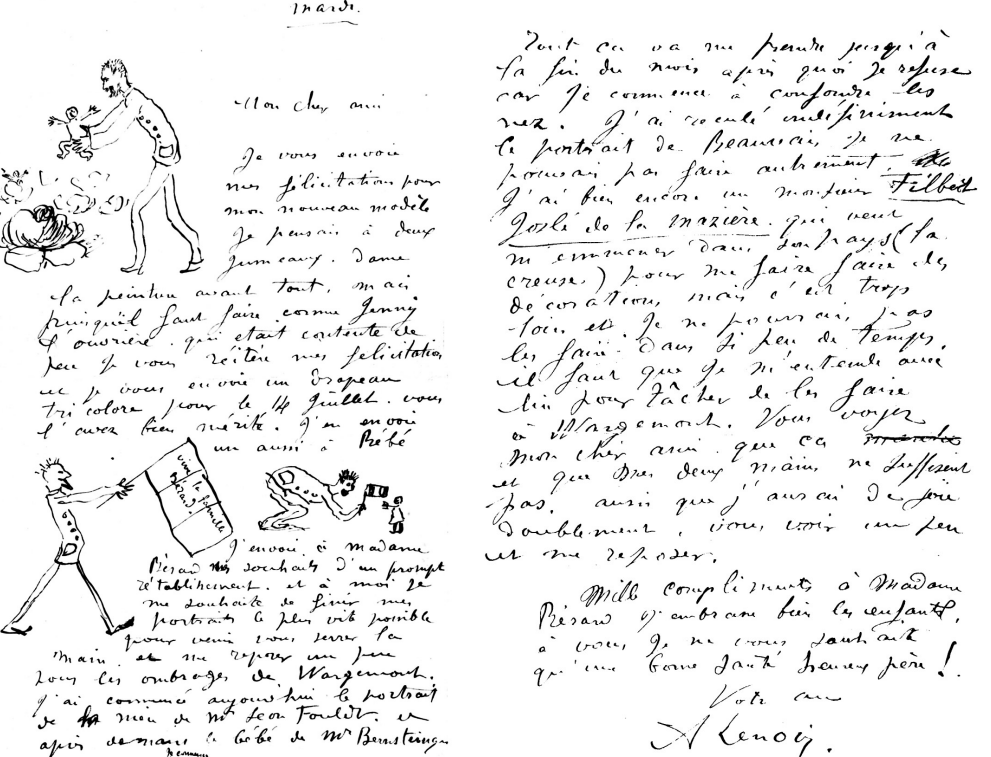 mardi.
Mon cher ami
Je vous envoie
mes félicitations pour
mon nouveau modèle
Je pensais à deux
jumeaux. Dame
la peinture avant tout, mais
puisqu'il faut faire comme Jenny
l'ouvrière qui était contente de
peu Je vous réitère mes félicitations
et je vous envoie un drapeau
tricolore pour le 14 Juillet. vous
l'avez bien mérité. J'en envoie
un aussi à Bébé
vive la famille
Bérard.
J'envoie à madame
Bérard mes souhaits d'un prompt
rétablissement. et à moi je
me souhaite de finir mes
portraits le plus vite possible
pour venir vous serrer la
main et me reposer un peu
sous les ombrages de Wargemont.
J'ai commencé aujourd'hui le portrait
de la mère de Mr Léon Fould. et
après demain le bébé de Mr
Je commence
Tout ça va me prendre jusqu'à
la fin du mois après quoi Je refuse
car Je commence à confondre les
nez. J'ai reculé indéfiniment
le portrait de Beaumais, Je ne
pouvais pas faire autrement.
J'ai bien encore un monsieur Filbert
de la mazière. qui veut
m'emmener dans son pays (la
creuse) pour me faire faire des
décorations mais c'est trop
loin et Je ne pourrais pas
les faire dans si peu de temps.
il faut que Je m'entende avec
lui pour tâcher de les faire
à Wargemont. Vous voyez
mon cher ami que ça
et que mes deux mains ne suffisent
pas. aussi que j'aurai de joie
doublement, vous voir un peu
et me reposer.
Mille compliments à Madame
Bérard J'embrasse bien les enfants,
à vous Je ne vous souhaite
qu'une bonne santé heureux père!
Votre ami
A Renoir.